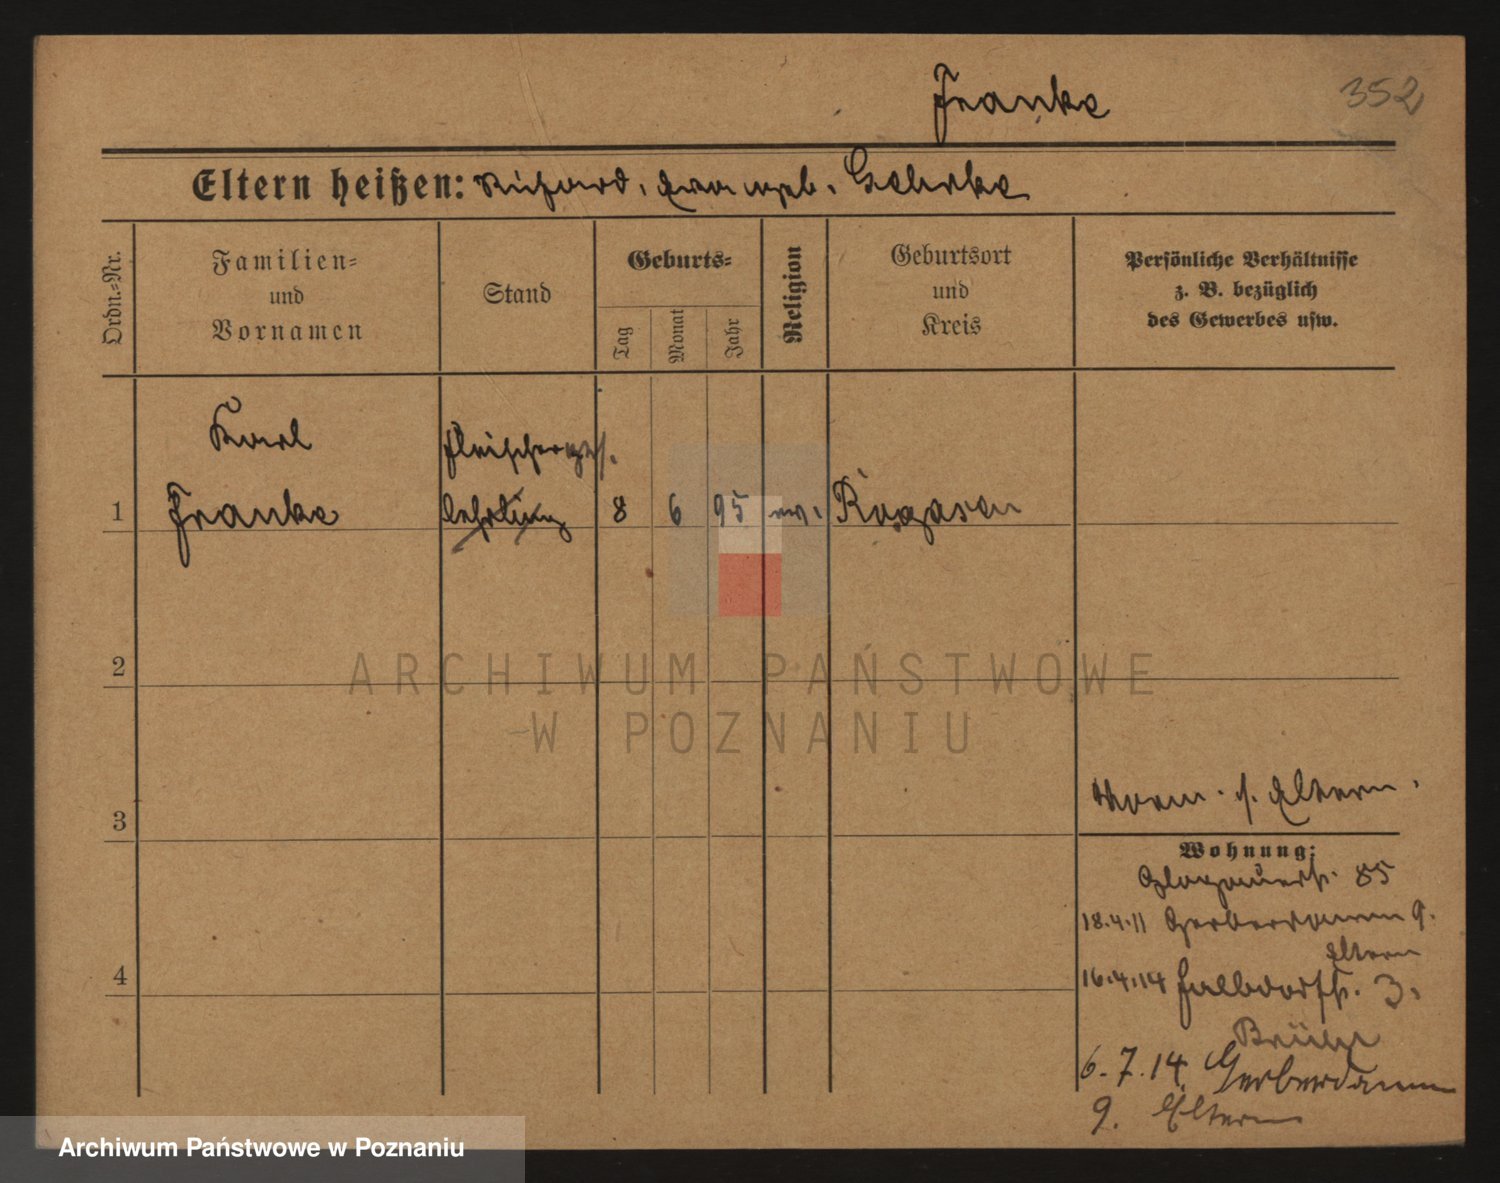 Franke
352
Eltern heißen: Richard, Eva geb. Gehrke
Ordn.=Nr.
Familien=
und
Vornamen
Stand
Geburts=
Tag
Monat
Jahr
Religion
Geburtsort
und
Kreis
Persönliche Verhältnisse
z. B. bezüglich
des Gewerbes usw.
Karl
Fleischerges.
1 Franke Lehrling 8 6 95 ev. Rogasen
2
3
4
Vorm. s. Eltern.
Wohnung:
Glogauerstr. 85
18.4.11 Gerberdamm 9.
Eltern
16.4.14 Halbdorfstr. 3.
6.7.14. Gerberdamm
9. Eltern
ARCHIWUM PAŃSTWOWE
W POZNANIU
Archiwum Państwowe w Poznaniu